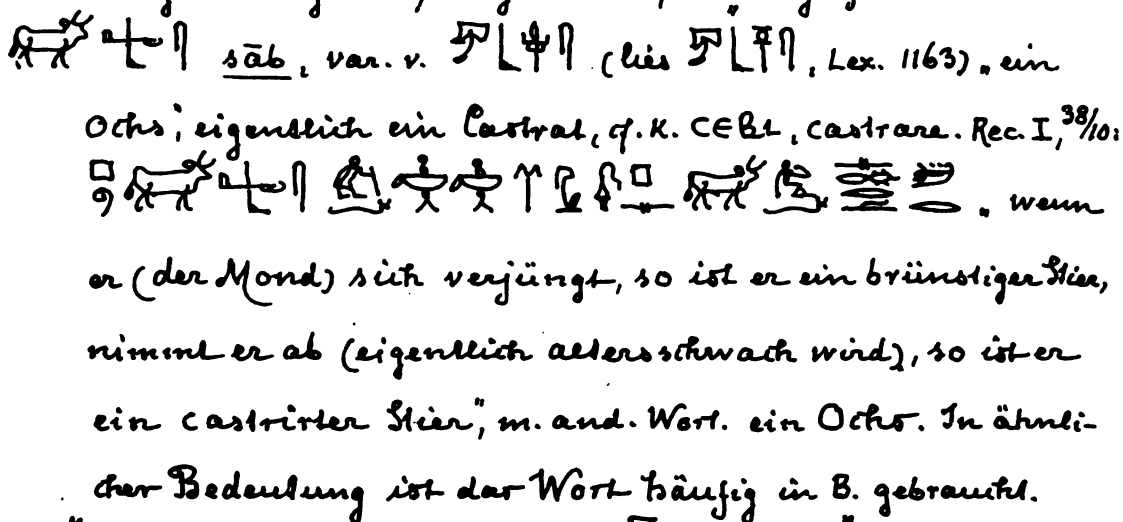 sāb, var. v. (lies , Lex. 1163) „ein
Ochs“, eigentlich ein Castrat, cf. K. ⲤⲈⲂⲒ, castrare. Rec. I, 38/10:
„wenn
er (der Mond) sich verjüngt, so ist er ein brünstiger Stier,
nimmt er ab (eigentlich altersschwach wird), so ist er
ein castrirter Stier“, m. and. Wort. ein Ochs. In ähnli-
cher Bedeutung ist das Wort häufig in B. gebraucht.